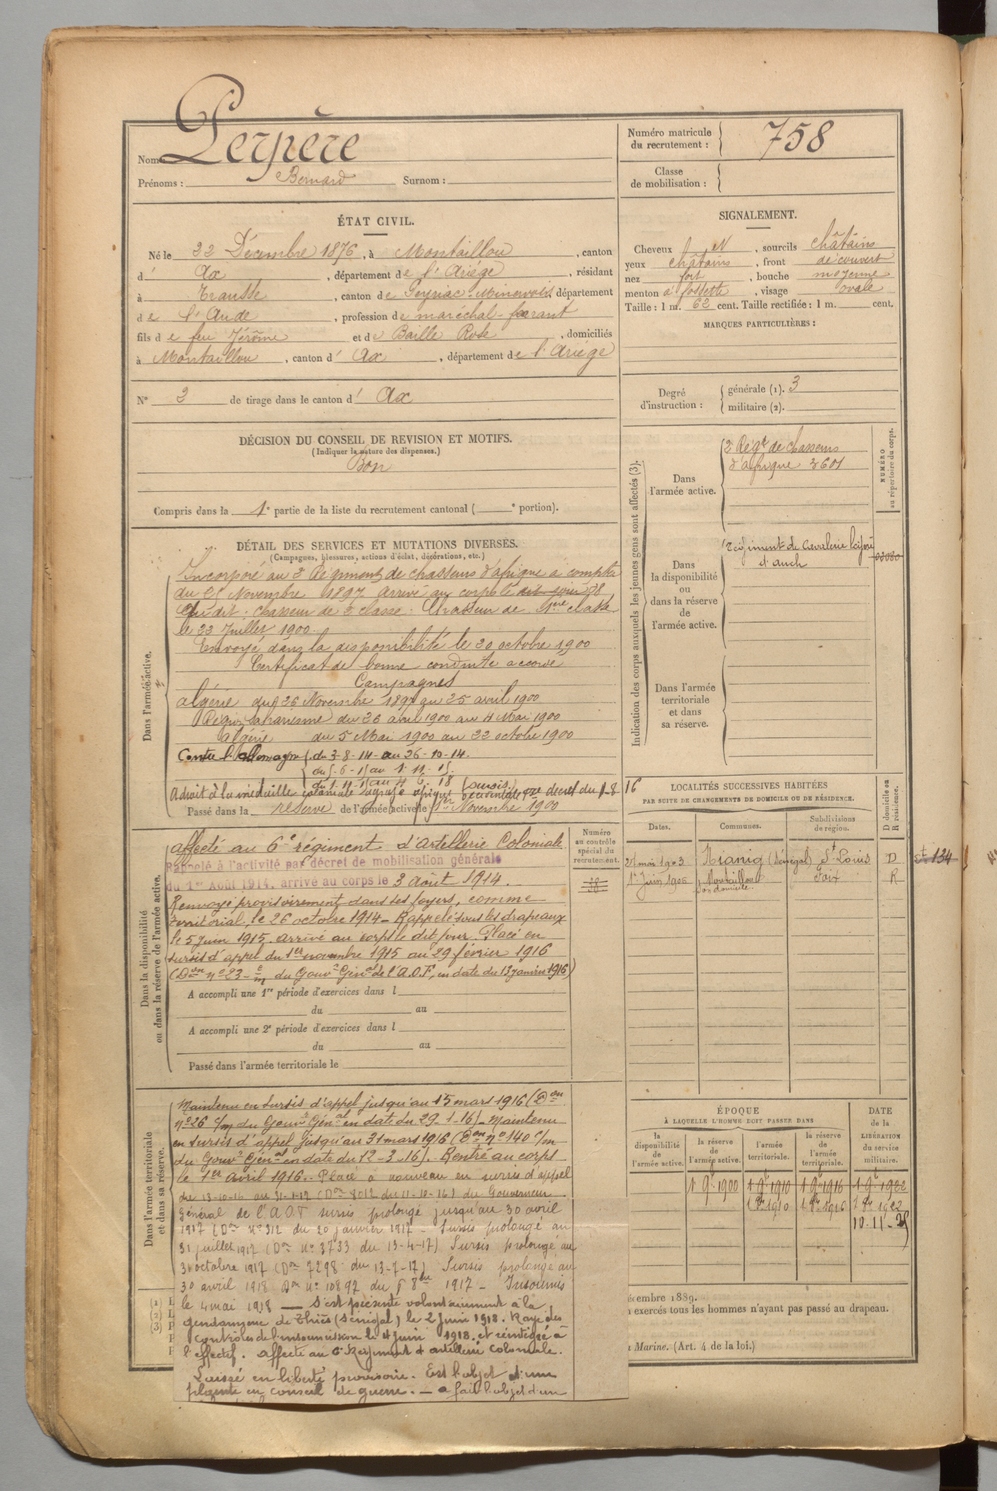 Nom Perpère
Prénoms : Bernard Surnom :
Numéro matricule du recrutement : 758
Classe de mobilisation :
ÉTAT CIVIL.
Né le 22 Décembre 1876, à Montaillou, canton
d' Ax, département de l'Ariège, résidant
à Trausse, canton de Peyriac-Minervois, département
de l'Aude, profession de maréchal-ferrant
fils de feu Jérôme et de Baille Rose, domiciliés
à Montaillou, canton d' Ax, département de l'Ariège
N° 3 de tirage dans le canton d' Ax
SIGNALEMENT.
Cheveux N, sourcils châtains
yeux châtains, front découvert
nez fort, bouche moyenne
menton à fossette, visage ovale
Taille : 1 m. 62 cent. Taille rectifiée : 1 m. cent.
MARQUES PARTICULIÈRES :
Degré d'instruction : générale (1). 3
militaire (2).
DÉCISION DU CONSEIL DE REVISION ET MOTIFS.
(Indiquer la nature des dispenses.)
Bon
Compris dans la 1e partie de la liste du recrutement cantonal ( e portion).
Indication des corps auxquels les jeunes gens sont affectés (3).
NUMÉRO au répertoire du corps.
Dans l'armée active.
2 Régt de chasseurs
d'afrique 2601
Dans la disponibilité ou dans la réserve de l'armée active.
Régiment de Cavalerie légère
d'auch
Dans l'armée territoriale et dans sa réserve.
DÉTAIL DES SERVICES ET MUTATIONS DIVERSES.
(Campagnes, blessures, actions d'éclat, décorations, etc.)
Dans l'armée active.
Incorporé au 2e Régiment de chasseurs d'afrique a compter
du 25 Novembre 1897 arrivé au corps le dit jour
chasseur de 2e classe. Chasseur de 1ère classe
le 23 Juillet 1900
Envoyé dans la disponibilité le 20 octobre 1900
Certificat de bonne conduite accordé
Campagnes
Algérie du 26 Novembre 1897 au 25 avril 1900
Région saharienne du 26 abril 1900 au 4 Mai 1900
Algérie du 5 Mai 1900 au 22 octobre 1900
Contre l'Allemagne du 3-8-14 au 26-10-14.
A droit à la médaille coloniale agrafe afrique occidentale décret du 1-8 16
Passé dans la réserve de l'armée active le 1er Novembre 1900
LOCALITÉS SUCCESSIVES HABITÉES
PAR SUITE DE CHANGEMENTS DE DOMICILE OU DE RÉSIDENCE.
Dates. Communes. Subdivisions de région. D domicile ou R résidence.
21 mai 1903 Nianig (Sénégal) St Louis D
1er Juin 1906 Montaillou Foix R
134
Dans la disponibilité ou dans la réserve de l'armée active.
Numéro au contrôle spécial du recrutement.
affecté au 6e régiment d'artillerie Coloniale
Rappelé à l'activité par décret de mobilisation générale
du 1er Août 1914, arrivé au corps le 3 Août 1914.
Renvoyé provisoirement dans ses foyers, comme
territorial, le 26 octobre 1914 – Rappelé sous les drapeaux
le 5 Juin 1915. arrivé au corps le dit jour. Placé en
sursis d'appel du 1er novembre 1915 au 29 février 1916
(Don n° 23 - du Gouvr Génal de l'A.O.F, en date du 13 janvier 1916)
A accompli une 1re période d'exercices dans l
du au
A accompli une 2e période d'exercices dans l
du au
Passé dans l'armée territoriale le
Dans l'armée territoriale et dans sa réserve.
Maintenu en sursis d'appel jusqu'au 15 mars 1916 (Don
n° 26 c/m du Gouvr Génal en date du 29-1-16). Maintenu
en sursis d'appel jusqu'au 31 mars 1916 (Don n° 140 c/m
du Gouvr Génal en date du 12-3-16). Rentré au corps
le 1er avril 1916. Placé à nouveau en sursis d'appel
du 13-10-16 au 31-1-17 (Don 8012 du 11-10-16) du Gouverneur
Général de l'A.O.F sursis prolongé jusqu'au 30 avril
1917 (Don n° 312 du 20 janvier 1917 - Sursis prolongé au
31 juillet 1917 (Don n° 3733 du 13-4-17) Sursis prolongé au
31 octobre 1917 (Don 7298 du 13-7-17) Sursis prolongé au
30 avril 1918 Don n° 10892 du 1917 – Insoumis
le 4 mai 1918 — S'est présenté volontairement à la
gendarmerie de Thiès (Sénégal) le 2 juin 1918. Rayé des
contrôles de l'insoumission le 4 juin 1918 et réintégré à
l'effectif. Affecté au 6e Régiment d'artillerie coloniale.
Laissé en liberté provisoire. Est l'objet d'une
plainte en conseil de guerre. — a fait l'objet d'un
ÉPOQUE
À LAQUELLE L'HOMME DOIT PASSER DANS
la disponibilité de l'armée active. la réserve de l'armée active. l'armée territoriale. la réserve de l'armée territoriale.
DATE de la LIBÉRATION du service militaire.
1 9bre 1900 1 9bre 1910 1 9bre 1916 1 9bre 1922
10-11-25
écembre 1889.
exercés tous les hommes n'ayant pas passé au drapeau.
Marine. (Art. 4 de la loi.)
(1)
(2)
(3)